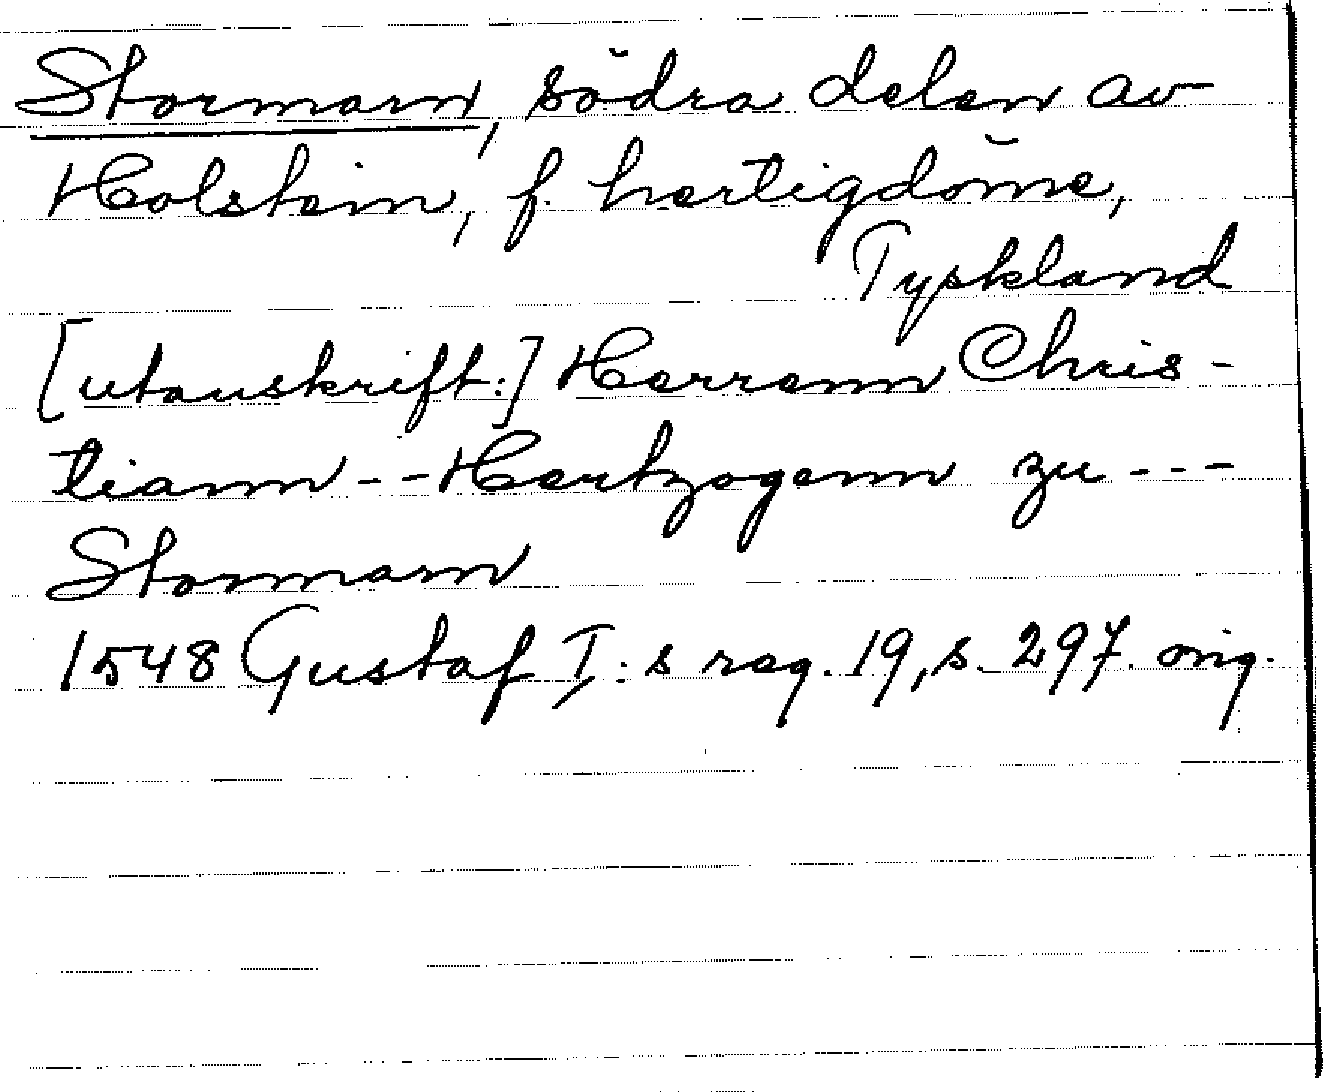 Stormarn, södra delen av
Holstein, f. hertigdöme,
Tyskland
[utanskrift:] Herrenn Chris-
tiann -- Hertzogenn zu ---
Stormarn
1548 Gustaf I:s reg. 19, s. 297. orig.